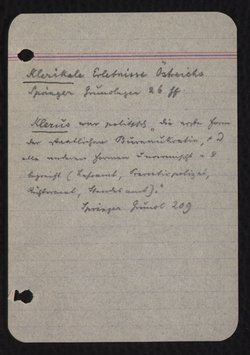 Klerikale Erlebnisse Östreichs
Springer Grundlagen 26 ff
Klerus war politisch "die erste Form
der staatlichen Bureaukratie,
alle anderen Formen
(Lehramt, Sanitätspolizei,
Richteramt, Standesamt)."
Springer Grundl 209